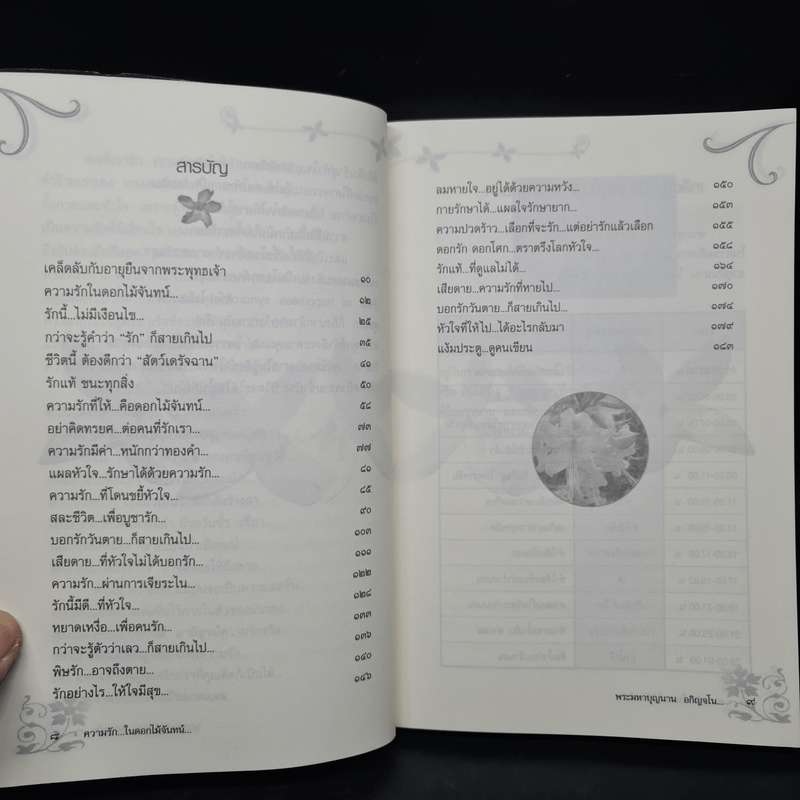 สารบัญ
เคล็ดลับกับอายุยืนจากพระพุทธเจ้า ๑๐
ความรักในดอกไม้จันทน์... ๑๒
รักนี้...ไม่มีเงื่อนไข... ๒๕
กว่าจะรู้คำว่า “รัก” ก็สายเกินไป ๓๕
ชีวิตนี้ ต้องดีกว่า “สัตว์เดรัจฉาน” ๔๑
รักแท้ ชนะทุกสิ่ง ๕๐
ความรักที่ให้...คือดอกไม้จันทน์... ๕๘
อย่าคิดทรยศ...ต่อคนที่รักเรา... ๗๓
ความรักมีค่า...หนักกว่าทองคำ... ๗๗
แผลหัวใจ...รักษาได้ด้วยความรัก... ๘๑
ความรัก...ที่โดนขยี้หัวใจ... ๘๕
สละชีวิต...เพื่อบูชารัก... ๙๐
บอกรักวันตาย...ก็สายเกินไป... ๑๐๓
เสียดาย...ที่หัวใจไม่ได้บอกรัก... ๑๑๑
ความรัก...ผ่านการเจียระไน... ๑๒๒
รักนี้มีดี...ที่หัวใจ... ๑๒๘
หยาดเหงื่อ...เพื่อคนรัก... ๑๓๓
กว่าจะรู้ตัวว่าเลว...ก็สายเกินไป... ๑๓๖
พิษรัก...อาจถึงตาย... ๑๔๐
รักอย่างไร...ให้ใจมีสุข... ๑๔๖
๘ ความรัก...ในดอกไม้จันทน์...
ลมหายใจ...อยู่ได้ด้วยความหวัง... ๑๕๐
กายรักษาได้...แผลใจรักษายาก... ๑๕๓
ความปวดร้าว...เลือกที่จะรัก...แต่อย่ารักแล้วเลือก ๑๕๕
ดอกรัก ดอกโศก...ตราตรึงโลกหัวใจ... ๑๕๘
รักแท้...ที่ดูแลไม่ได้... ๑๖๔
เสียดาย...ความรักที่หายไป... ๑๗๐
บอกรักวันตาย...ก็สายเกินไป... ๑๗๔
หัวใจที่ให้ไป...ได้อะไรกลับมา ๑๗๙
แง้มประตู...ดูคนเขียน ๑๘๓
พระมหาบุญนาน อกิญจโน... ๙